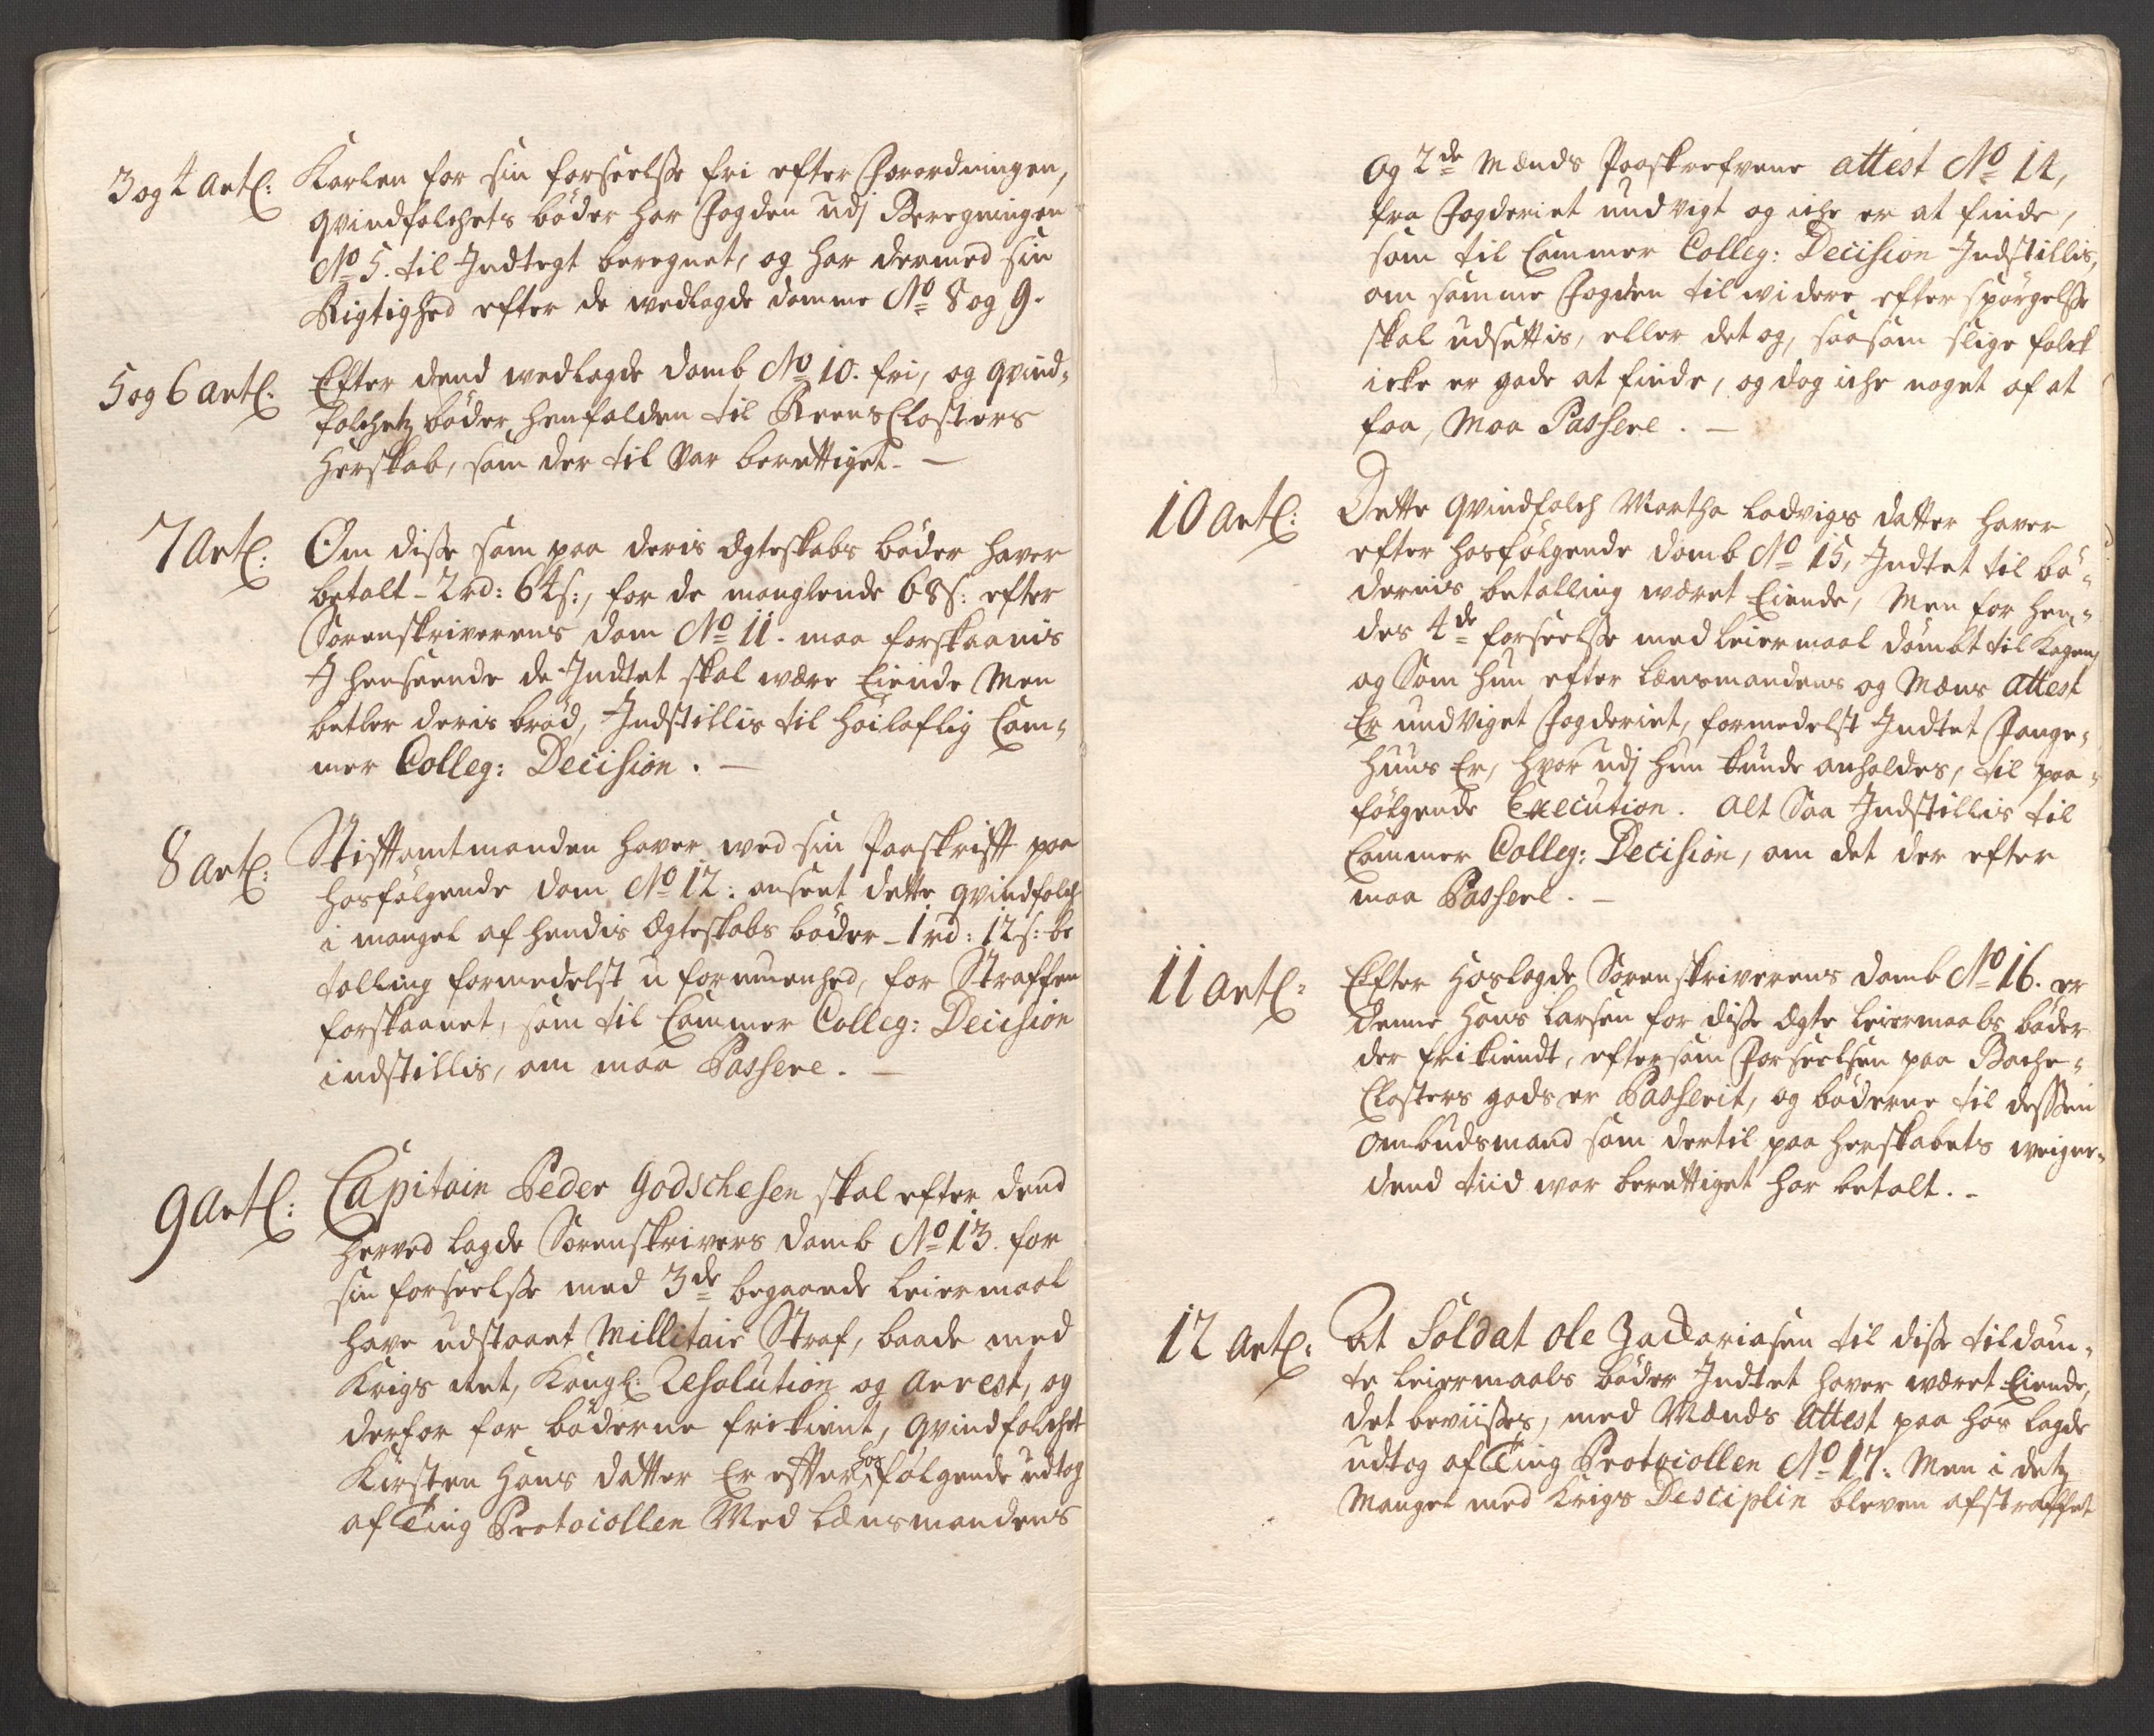 3 og 4 Artl: Karlen for sin forseelsse fri efter Forordningen,
qvindfolchets bøder har Fogden udj Beregningen
No 5. til Indtegt beregnet, og har dermed sin
Rigtighed efter de wedlagde domme No 8 og 9.
5 og 6 Artl. Efter dend wedlagde domb No 10. fri, og qvind-
folchetz bøder henfalden til Reens Closters
Herskab, som der til var berettiget. —
7 Artl: Om disse som paa deris Ægteskabs bøder haver
betalt - 2 rd: 64 s:, for de manglende 68 s: efter
Sorenskriverens dom No 11. maa forskaanis
J henseende de Indtet skal være Eiende Men
betler deris brød, Indstillis til høilaflig Cam-
mer Colleg: Decision. —
8 Artl: Stiftamtmanden haver wed sin Paaskrifft paa
hosfølgende dom No 12: anseet dette qvindfolch
i mangel af hendis Ægteskabs bøder - 1 rd: 12 s: be
talling formedelst uformuenhed, for Straffen
forskaanet, som til Cammer Colleg: Decision
indstillis, om maa Passere. —
9 Artl: Capitain Peder Godschesen skal efter dend
herved lagde Sorenskrivers domb No 13. for
sin forseelsse med 3de begaaede leiermaal
have udstaaet Millitair Straf, baade med
Krigs ret, Kongl: Resolution og Arrest, og
derfor for bøderne frikient, qvindfolchet
Kirsten Hans datter Er effter hosfølgende udtog
af Ting Protocollen Med Lænsmandens
og 2de Mænds Paaskrefvene attest No 14,
fra Fogderiet undvigt og iche er at finde,
som til Cammer Colleg: Decision Indstillis,
om samme Fogden til widere efter spørgelsse
skal udsettis, eller det og, saasom slige folck
icke er gode at finde, og dog iche noget af at
faa, Maa Passere. —
10 Artl: Dette qvindfolch Martha Lodvigs datter haver
efter hosfølgende domb No 15, Indtet til bø-
dernis betalling wæret Eiende, Men for hen-
des 4de forseelsse med leiermaal dømbt til Kagen,
og Som hun efter Lænsmandens og Mæns Attest
Er undviget Fogderiet, formedelst Indtet Fange-
huus Er, hvor udj hun kunde anholdes, til paa-
følgende Execution. Alt Saa Indstillis til
Cammer Colleg: Decision, om det der efter
maa Passere. —
11 Artl: Efter Hoslagde Sorenskriverens domb No 16. er
denne Hans Larsen for disse Ægte leiermaals bøder
der frikiendt, eftersom Forseelsen paa Bache-
Closters gods er Passerit, og bøderne til dessen
Ombudsmand som dertil paa Herskabets weigne,
dend tiid war berettiget har betalt. -
12 Artl: At Soldat Ole Zachariasen til disse tildøm-
te leiermaals bøder Indtet haver wæret Eiende,
det beviisses, med Mænds Attest paa hos lagde
udtog af Ting Protocollen No 17: Men i detz
Mangel med Krigs Desciplin bleven afstraffet